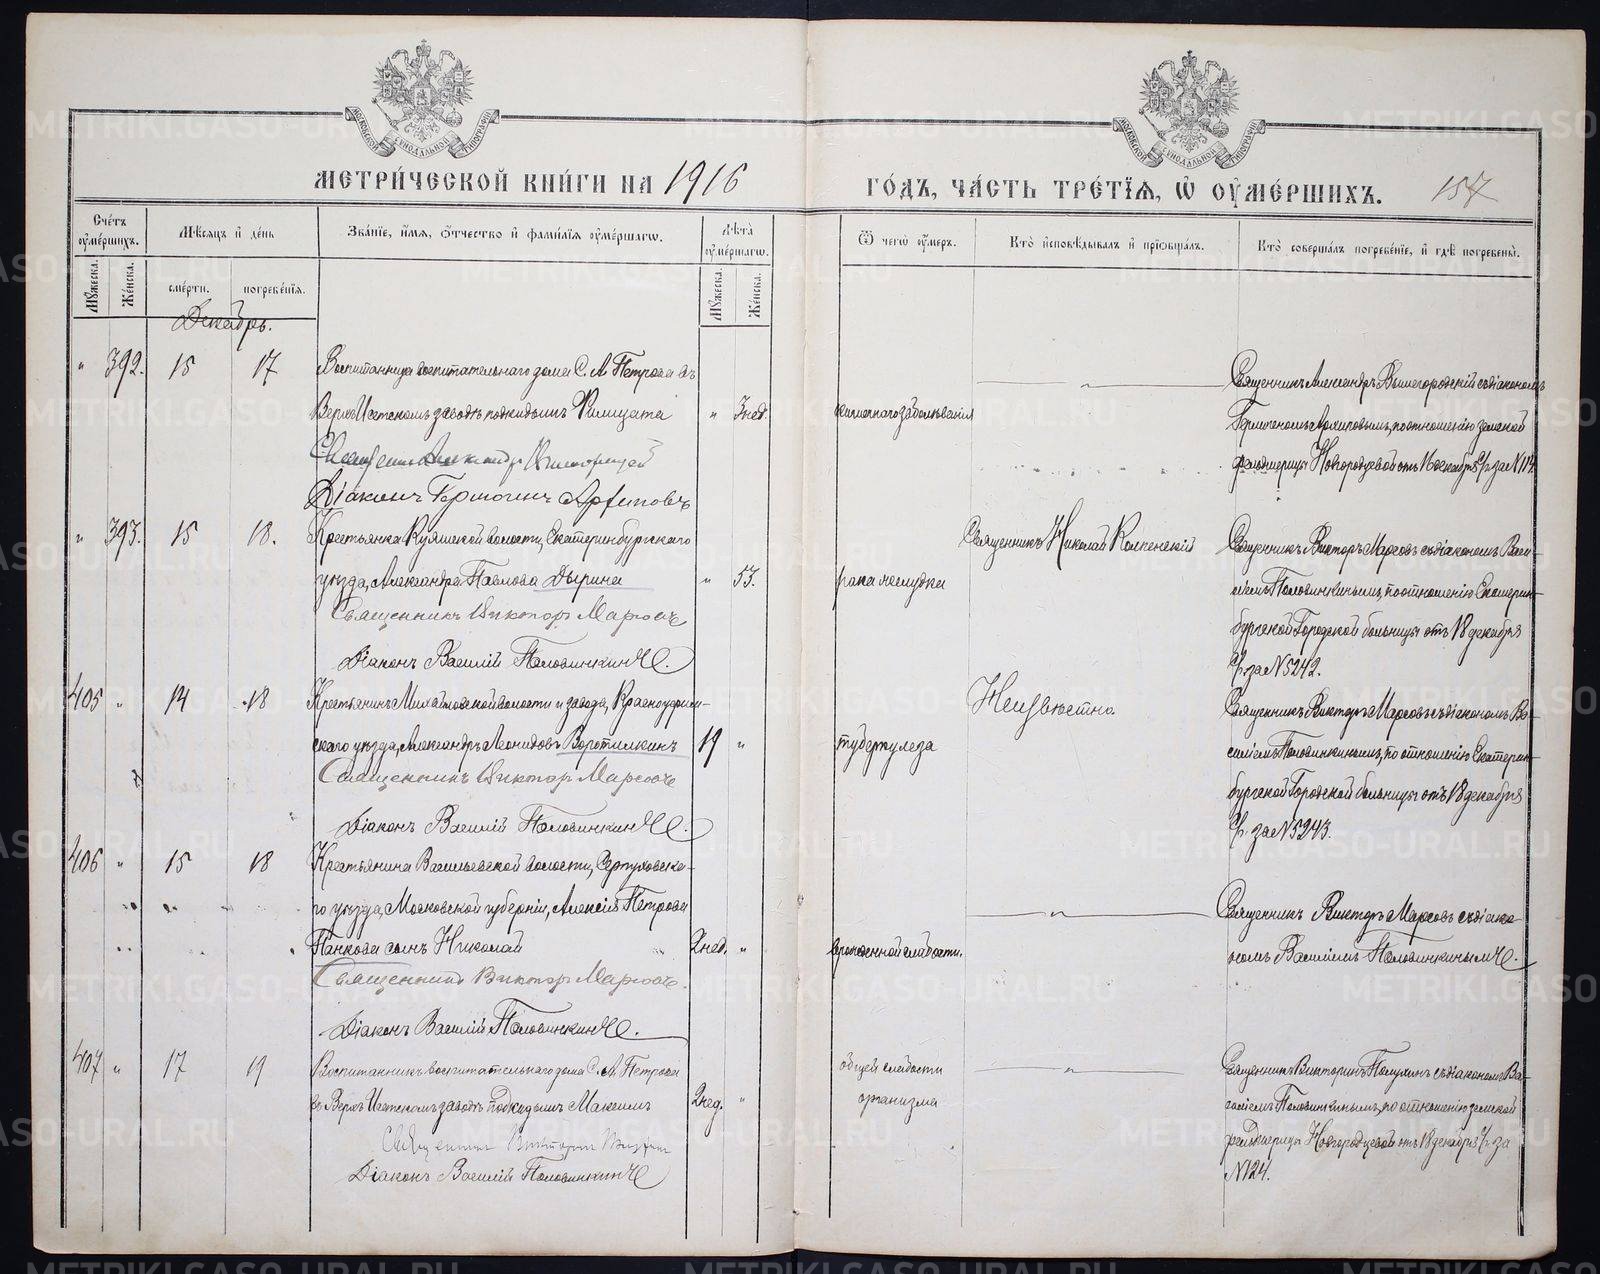 МОСКОВСКОЙ СѴНОДАЛЬНОЙ ТИПОГРАФІИ
МОСКОВСКОЙ СѴНОДАЛЬНОЙ ТИПОГРАФІИ
МЕТРИ́ЧЕСКОЙ КНИ́ГИ НА 1916
ГО́ДЪ, ЧА́СТЬ ТРЕ́ТЇѦ, Ѽ ОУ҆МЕ́РШИХЪ. 157
Сче́тъ оу҆ме́ршихъ.
Мꙋ́жеска.
Же́нска.
Мѣ́сѧцъ и҆ де́нь
сме́рти.
погребе́нїѧ.
Зва́нїе, и҆́мѧ, ѻ҆́тчество и҆ фами́лїѧ оу҆ме́ршагѡ.
Лѣ́та оу҆ме́ршагѡ.
Мꙋ́жеска.
Же́нска.
Ѿ чегѡ̀ оу҆́меръ.
Кто̀ и҆сповѣ́дывалъ и҆ прїѡбща́лъ.
Кто̀ соверша́лъ погребе́нїе, и҆ гдѣ̀ погребены̀.
Декабрь.
" 392. 15 17 Воспитанница воспитательнаго дома С. А. Петрова въ
Верхъ Исетскомъ заводѣ подкидышъ Филицата " 3 нед.
Священникъ Александръ Вышегородскій
Діаконъ Гермогенъ Архиповъ
кишечнаго заболѣванія
— " —
Священникъ Александръ Вышегородскій съ діакономъ
Гермогеномъ Архиповымъ, по отношенію земской
фельдшерицы Новгородцевой отъ 16 декабря с/г за №114.
" 393. 15 18. Крестьянка Куяшской волости, Екатеринбургскаго
уѣзда, Александра Павлова Дырина " 53.
Священникъ Викторъ Марсовъ
Діаконъ Василій Половинкинъ.
рака желудка
Священникъ Николай
Священникъ Викторъ Марсовъ съ діакономъ Васи-
ліемъ Половинкинымъ, по отношенію Екатерин-
бургской Городской больницы отъ 18 декабря
с/г. за №5242.
405 " 14 18 Крестьянинъ Михайловской волости и завода, Красноуфим-
скаго уѣзда, Александръ Леонидовъ Воротилкинъ 19 "
Священникъ Викторъ Марсовъ
Діаконъ Василій Половинкинъ.
туберкулеза
Неизвѣстно.
Священникъ Викторъ Марсовъ съ діакономъ Ва-
силіемъ Половинкинымъ, по отношенію Екатерин-
бургской Городской больницы отъ 18 декабря
с/г. за №5243.
406 " 15 18 Крестьянина Васильевской волости, Серпуховска-
го уѣзда, Московской губерніи, Алексія Петрова
Панкова сынъ Николай 2 нед. "
Священникъ Викторъ Марсовъ.
Діаконъ Василій Половинкинъ.
врожденной слабости.
— " —
Священникъ Викторъ Марсовъ съ діако-
номъ Василіемъ Половинкинымъ.
407 " 17 19 Воспитанникъ воспитательнаго дома С. А. Петрова
въ Верхъ Исетскомъ заводѣ подкидышъ Максимъ 2 нед. "
Священникъ Викторинъ
Діаконъ Василій Половинкинъ
общей слабости
организма
— " —
Священникъ Викторинъ съ діакономъ Ва-
силіемъ Половинкинымъ, по отношенію земской
фельдшерицы Новгородцевой отъ 18 декабря с/г за
№124.
METRIKI.GASO-URAL.RU